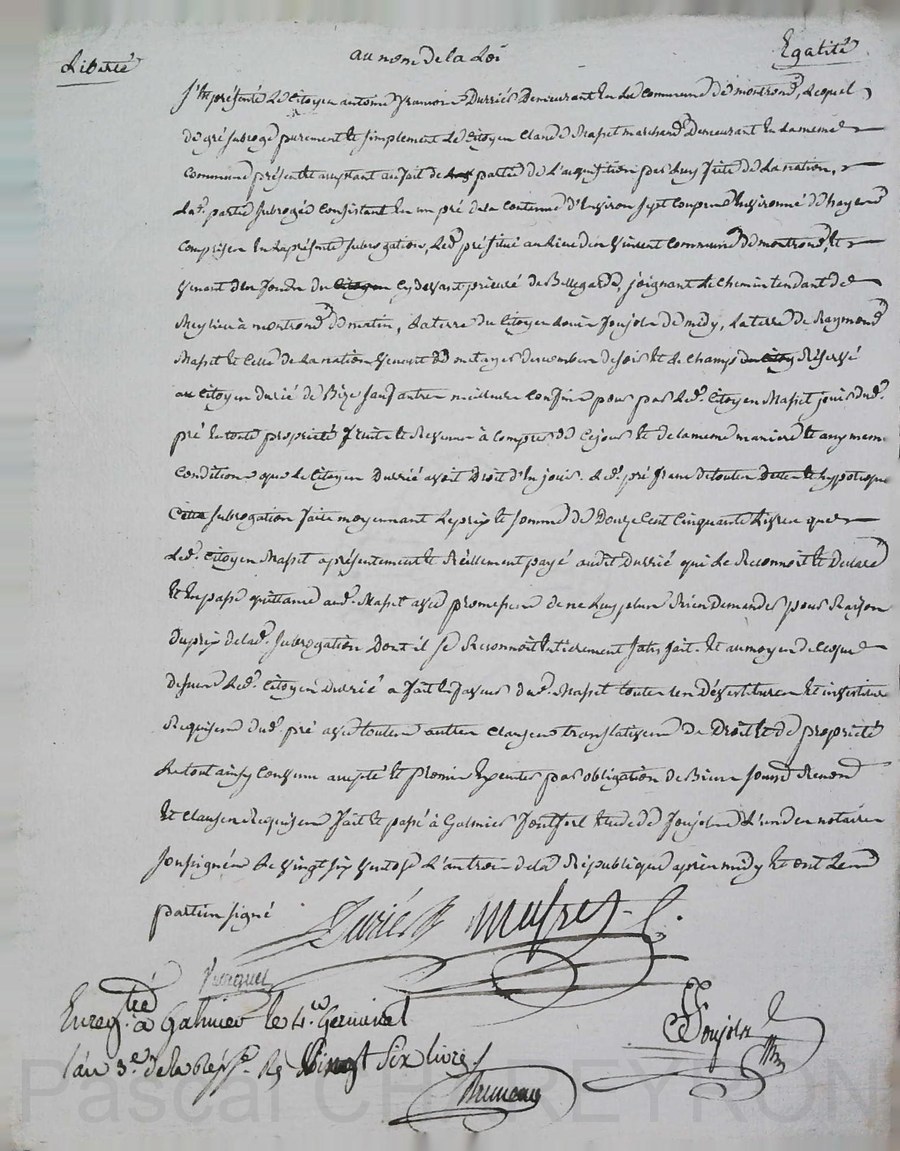 Liberté
au nom de la Loi
Egalité
S'est présenté le Citoyen antoine françois Durrié Demeurant En la Commune de montrond, Lequel
de gré subrogé purement et simplement Le Citoyen Claude Masset marchand Demeurant En la meme
Commune présent et acceptant au fait de partie de L'acquisition par Luy faite de La nation,
La de. partie subrogée Consistant En un pré de la Contenue d'Environ sept Coupes Environné de hayes
Comprises En la présente subrogation, Led. pré situé au Lieu de Vincent Commune de montrond, et
Venant des fonds du Citoyen Cydevant prieuré de Bellegarde, joignant Le chemin tendant de
Meylieu à montrond de matin, La terre du Citoyen Louis Joujoln de midy, La terre de Raymond
Masset et Celle de La nation Venant de de soir et Le Champ du Citoy Réservé
au Citoyen Durié de Bize sauf autres meilleurs Confins pour par Led. Citoyen Masset jouir dud.
pré En toute propriété fruits et Revenus à Compter de Cejour et de la meme maniere et aux memes
Conditions que Le Citoyen Durrié avoit Droit d'En jouir. Led. pré franc de toutes Dettes et hypoteque
Cette subrogation faite moyennant Le prix et somme de Douze Cent Cinquante Livres que
Led. Citoyen Masset a présentement et Réellement payé audit Durrié qui Le Reconnoit et Declare
Et En passe quittance aud. Masset avec promesse de ne Luy plus Rien Demander pour Raison
Du prix de lad. subrogation Dont il se Reconnoit Entierement satisfait. Et au moyen de Ceque
dessus Led. Citoyen Durrié a fait En faveur dud. Masset toutes les Dévestitures Et investitures
Requises dud. pré avec toutes autres Clauses translatives de Droit et de propriété
Le tout ainsy Convenu accepté Et promis Executer par obligation de Biens soumis Renond
Et Clauses Requises fait et passé à Galmier Etude de Joujoln L'un des notaires
soussignés Le Vingt six Ventose L'an trois de la République après midy Et ont Les
parties signé
Durrié
Masset
Enregtré à Galmier le 4e. Germinal
l'an 3e. de la Rép. Rç Vingt Six livres
Joujoln
Bruneau
Pascal CHAREYRON